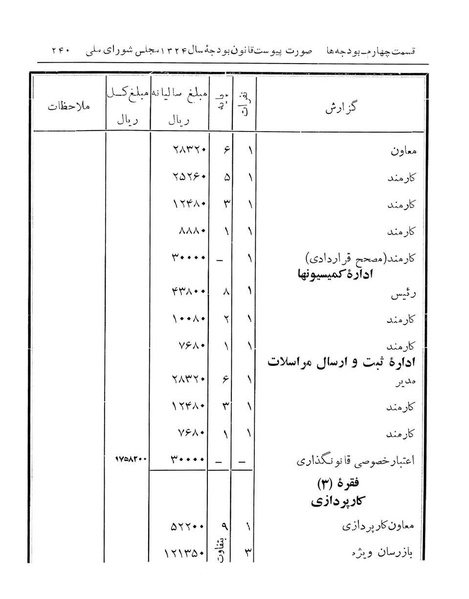 قسمت چهارم ـ بودجه‌ها صورت پیوست قانون بودجهٔ سال ۱۳۲۴ مجلس شورای ملی ۲۴۰
گزارش نفرات پایه مبلغ سالیانه ریال مبلغ کل ریال ملاحظات
معاون ۱ ۶ ۲۸۳۲۰
کارمند ۱ ۵ ۲۵۲۶۰
کارمند ۱ ۳ ۱۲۴۸۰
کارمند ۱ ۱ ۸۸۸۰
کارمند (مصحح قراردادی) ۱ – ۳۰۰۰۰
ادارهٔ کمیسیونها
رئیس ۱ ۸ ۴۳۸۰۰
کارمند ۱ ۲ ۱۰۰۸۰
کارمند ۱ ۱ ۷۶۸۰
ادارهٔ ثبت و ارسال مراسلات
مدیر ۱ ۶ ۲۸۳۲۰
کارمند ۱ ۳ ۱۲۴۸۰
کارمند ۱ ۱ ۷۶۸۰
اعتبار خصوصی قانونگذاری – – ۳۰۰۰۰ ۹۷۵۸۲۰۰
فقرهٔ (۳)
کارپردازی
معاون کارپردازی ۱ ۹ ۵۲۲۰۰
بازرسان ویژه ۳ بتفاوت ۱۲۱۳۵۰